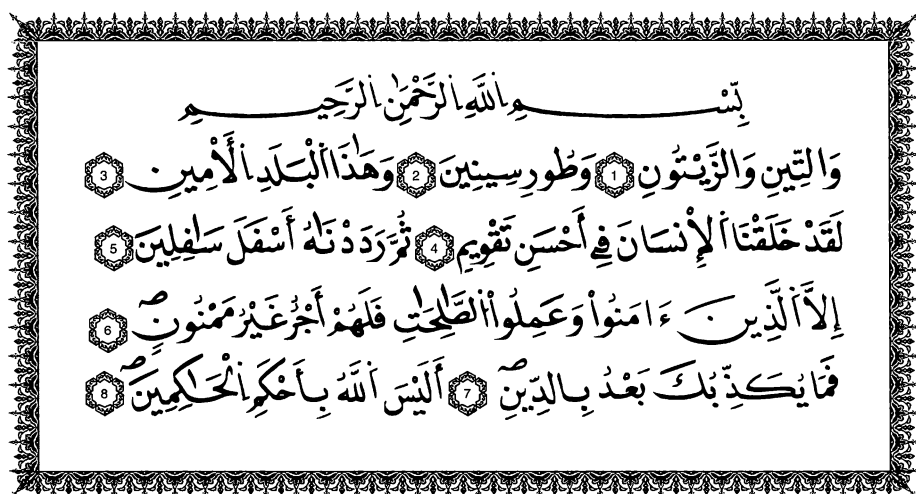 بِسْمِ اِ۬للَّهِ اِ۬لرَّحْمَٰنِ اِ۬لرَّحِيمِ
وَالتِّينِ وَالزَّيْتُونِ 1 وَطُورِ سِينِينَ 2 وَهَٰذَا اَ۬لْبَلَدِ اِ۬لْأَمِينِ 3
لَقَدْ خَلَقْنَا اَ۬لْإِنسَانَ فِے أَحْسَنِ تَقْوِيمٍ 4 ثُمَّ رَدَدْنَٰهُ أَسْفَلَ سَٰفِلِينَ 5
إِلَّا اَ۬لَّذِينَ ءَامَنُواْ وَعَمِلُواْ اُ۬لصَّٰلِحَٰتِ فَلَهُمْ أَجْرٌ غَيْرُ مَمْنُونٍۖ 6
فَمَا يُكَذِّبُكَ بَعْدُ بِالدِّينِۖ 7 أَلَيْسَ اَ۬للَّهُ بِأَحْكَمِ اِ۬لْحَٰكِمِينَۖ 8